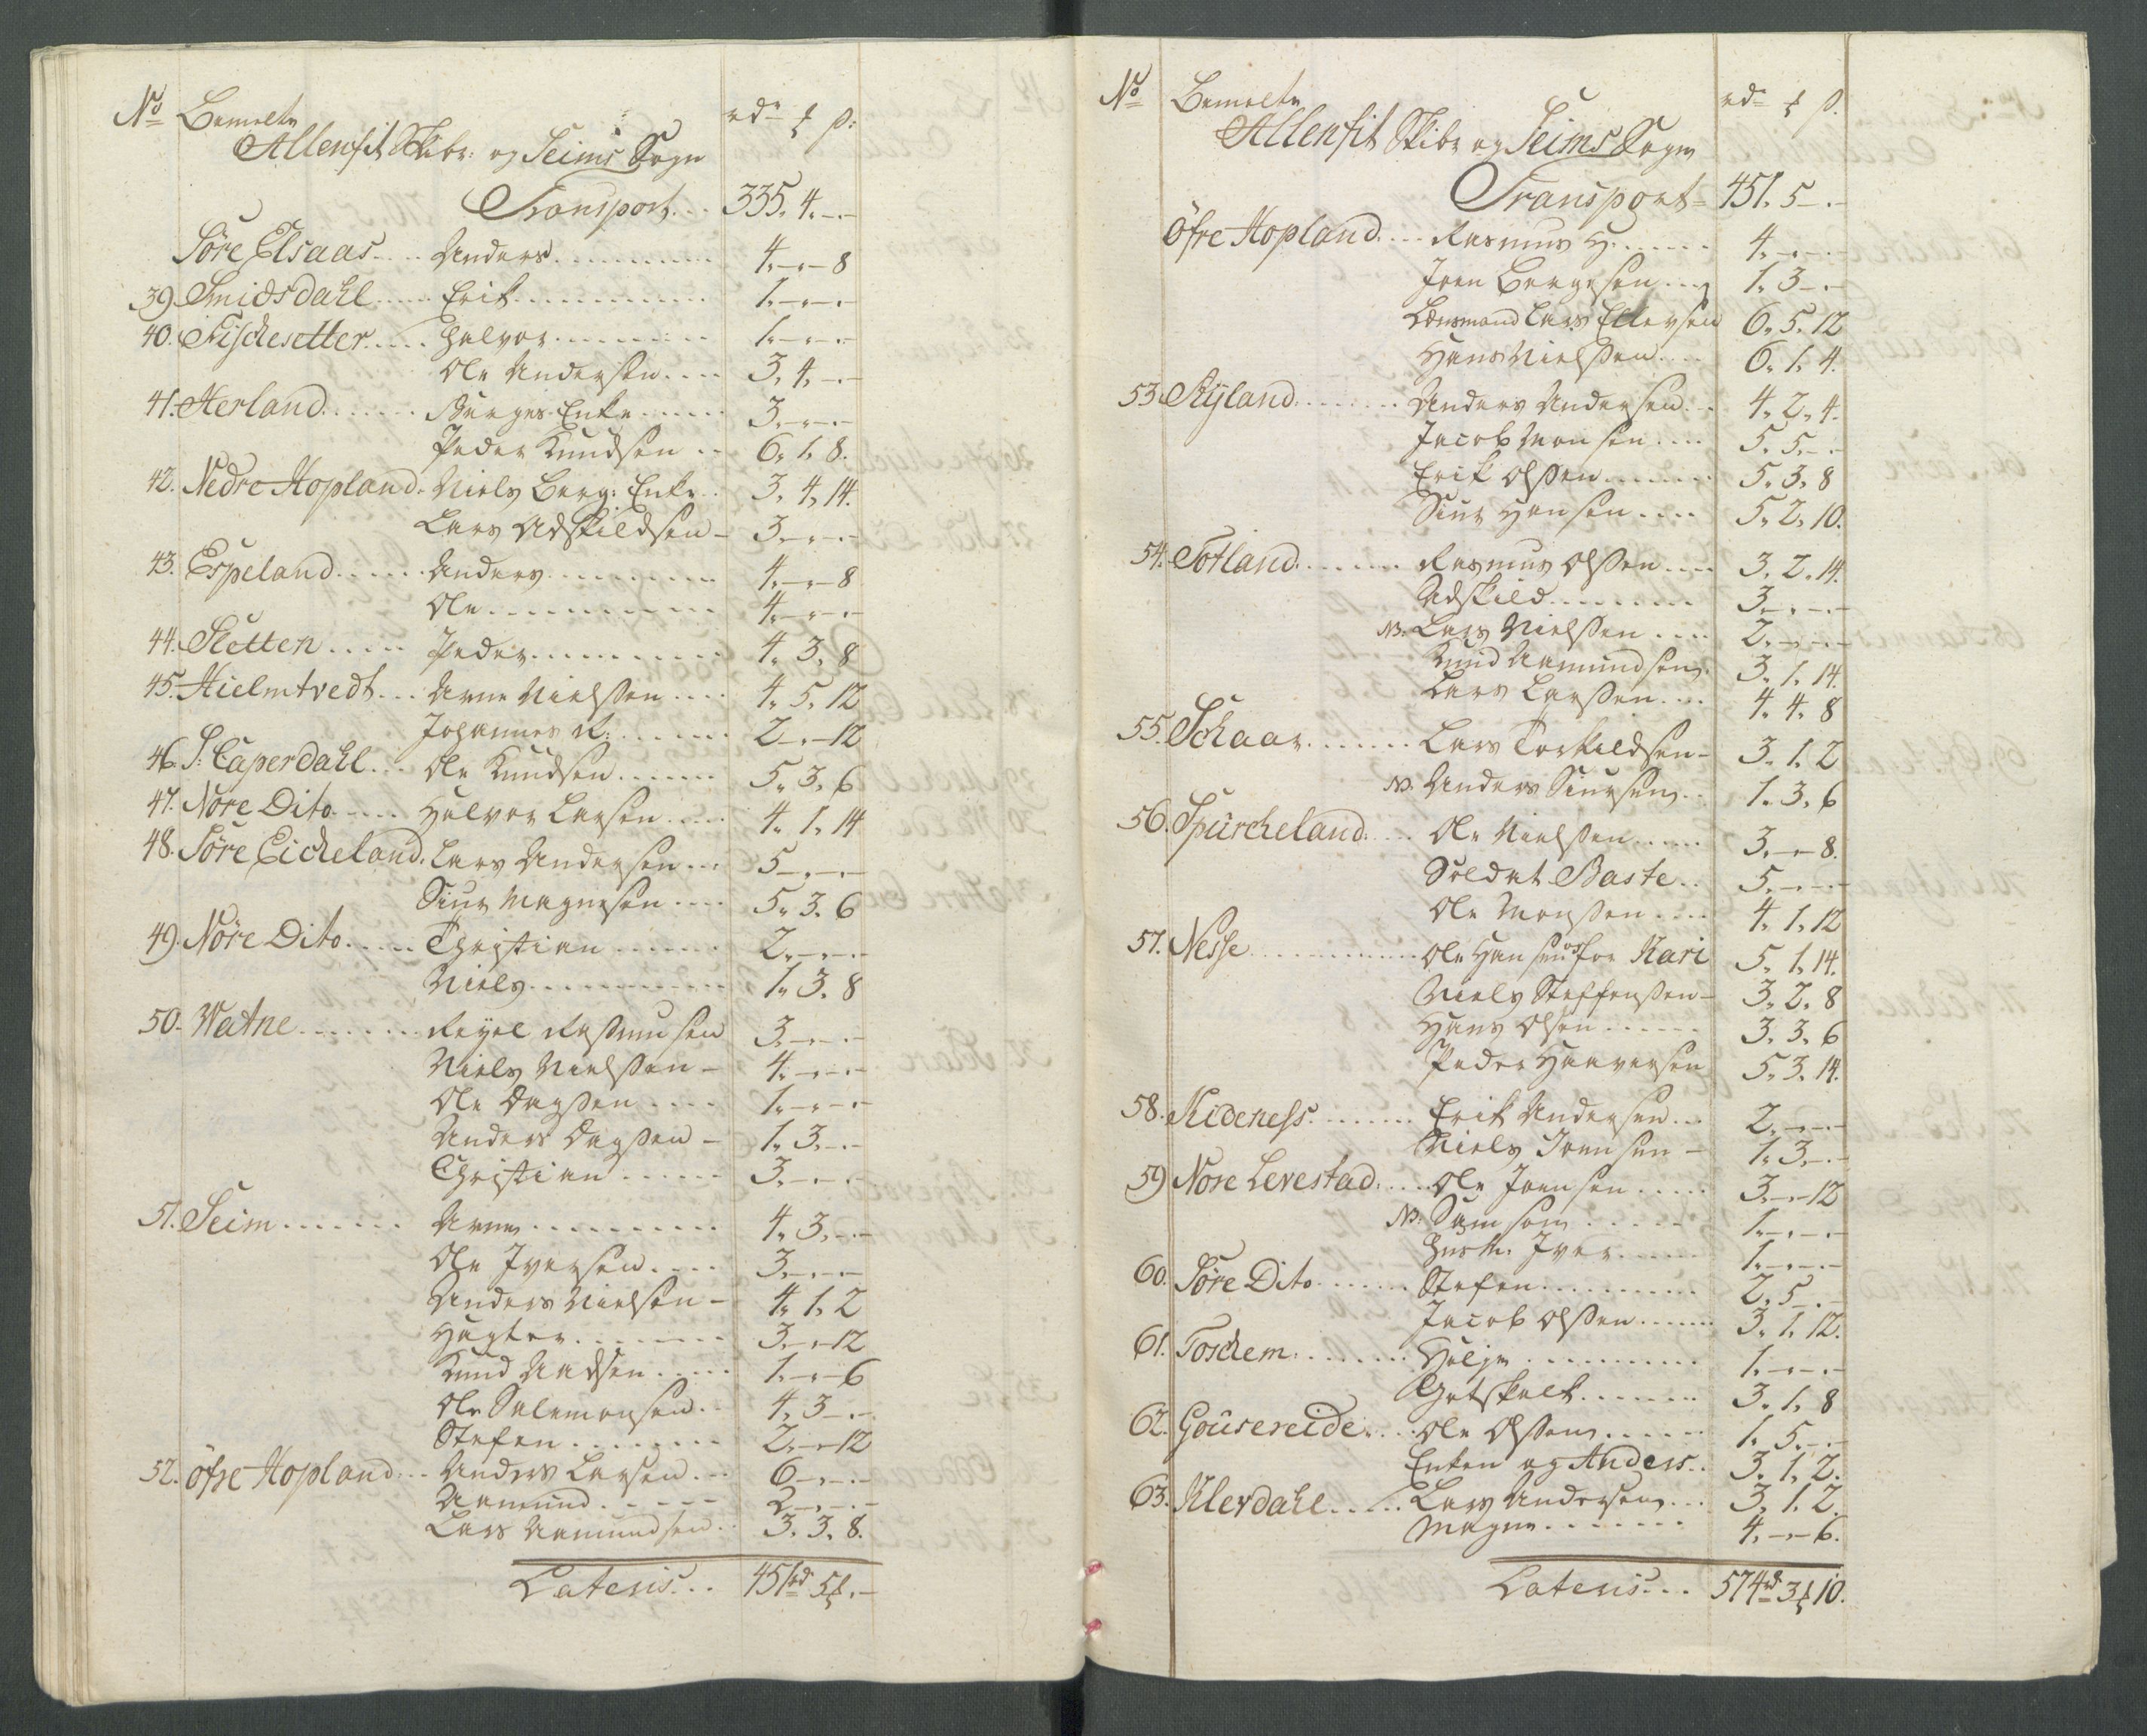 No Bemelte rdr ȝ ß:
Allenfit Skibr: og Seims Sogn
Transport... 335. 4. –.–
Søre Elsaas.... Anders.......... 4. –.– 8
39. Smidsdahl..... Erik.......... 1. –.–.–
40. Fischesetter..... Halvor........ 1. –.–.–
Ole Andersen.... 3. 4. –.–
41. Herland....... Børges Enke...... 3. –.–.–
Peder Knudsen.. 6. 1. 8.
42. Nedre Hopland. Niels Berg: Enke.. 3. 4. 14.
Lars Adskildsen– 3. –.–.–
43. Espeland...... Anders......... 4. –.– 8
Ole............ 4. –.–.–
44. Sletten..... Peder.......... 4. 3. 8
45. Hielmtvedt... Arne Nielsen.... 4. 5. 12
Johannes R:....... 2 –.– 12
46. S: Caperdahl... Ole Knudsen...... 5. 3. 6
47. Nore Dito..... Halvor Larsen.... 4. 1. 14
48. Søre Eicheland. Lars Andersen... 5 –.–.–
Siur Magnesen.... 5. 3. 6
49. Nøre Dito..... Christian........ 2. –.–.–
Niels........... 1. 3. 8
50. Watne....... Rasmusen 3. –.–.–
Niels Nielsen– 4. –.–.–
Ole Dagsen.... 1. –.–.–
Anders Dagsen– 1. 3. –.–
Christian...... 3. –.–.–
51. Seim....... Arne.......... 4. 3. –.–
Ole Iversen.... 3. –.–.–
Anders Nielsen– 4. 1. 2
Hagter........ 3. –.– 12
Knud Aadsen..... 1. –.– 6
Ole Salamonsen.. 4. 3 –.–
Stefen........ 2. –.– 12
52. Øfre Hopland... Anders Larsen... 6 –.–.–
Aamund...... 2 –.–.–
Lars Aamundsen.. 3. 3. 8.
Lateris... 451rd 5ȝ. –
No Bemelte rdr ȝ ß.
Allenfit Skibr og Seims Sogn
Transport– 451. 5 –.–
Øfre Hopland.... Rasmus H....... 4. –.–.–
Joen Børgesen.... 1. 3 –.–
Lensmand Lars Ellevsen 6. 5. 12
Hans Nielsen.... 6. 1. 4.
53. Ryland........ Anders Andersen.. 4. 2. 4.
Jacob Monsen.... 5. 5. –.–
Erik Olsen....... 5. 3. 8
Siur Hansen.... 5. 2. 10.
54. Totland....... Rasmus Olsen.... 3. 2. 14.
Adskild........ 3. –.–.–
NB. Lars Nielsen.... 2. –.–.–
Knud Aamundsen. 3. 1. 14.
Lars Larsen.... 4. 4. 8
55. Schaar....... Lars Torkildsen– 3. 1. 2
NB. Anders Siursen.. 1. 3. 6
56. Spürcheland.... Ole Nielsen..... 3. –.– 8.
Soldat Baste.. 5. –.–.–
Ole Monsen.... 4. 1. 12
57. Nesse........... Ole Hansen for Kari 5. 1. 14.
Niels Steffensen– 3. 2. 8
Hans Olsen...... 3. 3. 6
Peder Haaversen 5. 3. 14.
58. Kideness....... Erik Andersen... 2. –.–.–
Niels Joensen– 1. 3. –.–
59. Nore Levestad.... Ole Joensen..... 3. –.– 12
NB. Samson...... 1. –.–.–
Husm: Iver..... 1. –.–.–
60. Søre Dito...... Stefen......... 2. 5 –.–
Jacob Olsen...... 3. 1. 12.
61. Toschem....... Helje.......... 1. –.–.–
Gotskalk....... 3. 1. 8
62. Goûsereide.... Ole Olsen...... 1. 5. –.–
Enken og Anders.. 3. 1. 2.
63. Klevdahl..... Lars Andersen... 3. 1. 2.
Magne........ 4. –.– 6.
Lateris... 574rd 3ȝ 10.